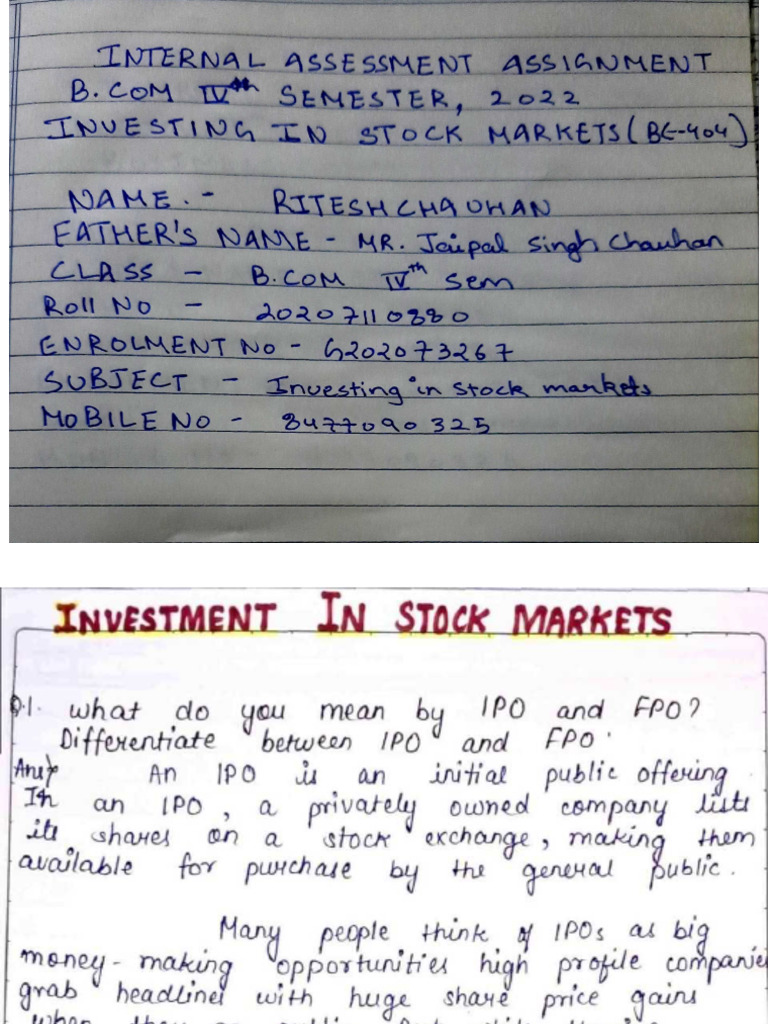 INTERNAL ASSESSMENT ASSIGNMENT
B.COM IVth SEMESTER, 2022
INVESTING IN STOCK MARKETS (BE-404)
NAME. - RITESH CHAUHAN
FATHER'S NAME - MR. Jaipal Singh Chauhan
CLASS - B.COM IVth Sem
Roll No - 20207110880
ENROLMENT NO - G202073267
SUBJECT - Investing in stock markets
MOBILE NO - 8477090325
INVESTMENT IN STOCK MARKETS
Q.1. What do you mean by IPO and FPO?
Differentiate between IPO and FPO.
Ans) An IPO is an initial public offering
In an IPO, a privately owned company lists
its shares on a stock exchange, making them
available for purchase by the general public.
Many people think of IPOs as big
money-making opportunities high profile companies
grab headlines with huge share price gains
when they